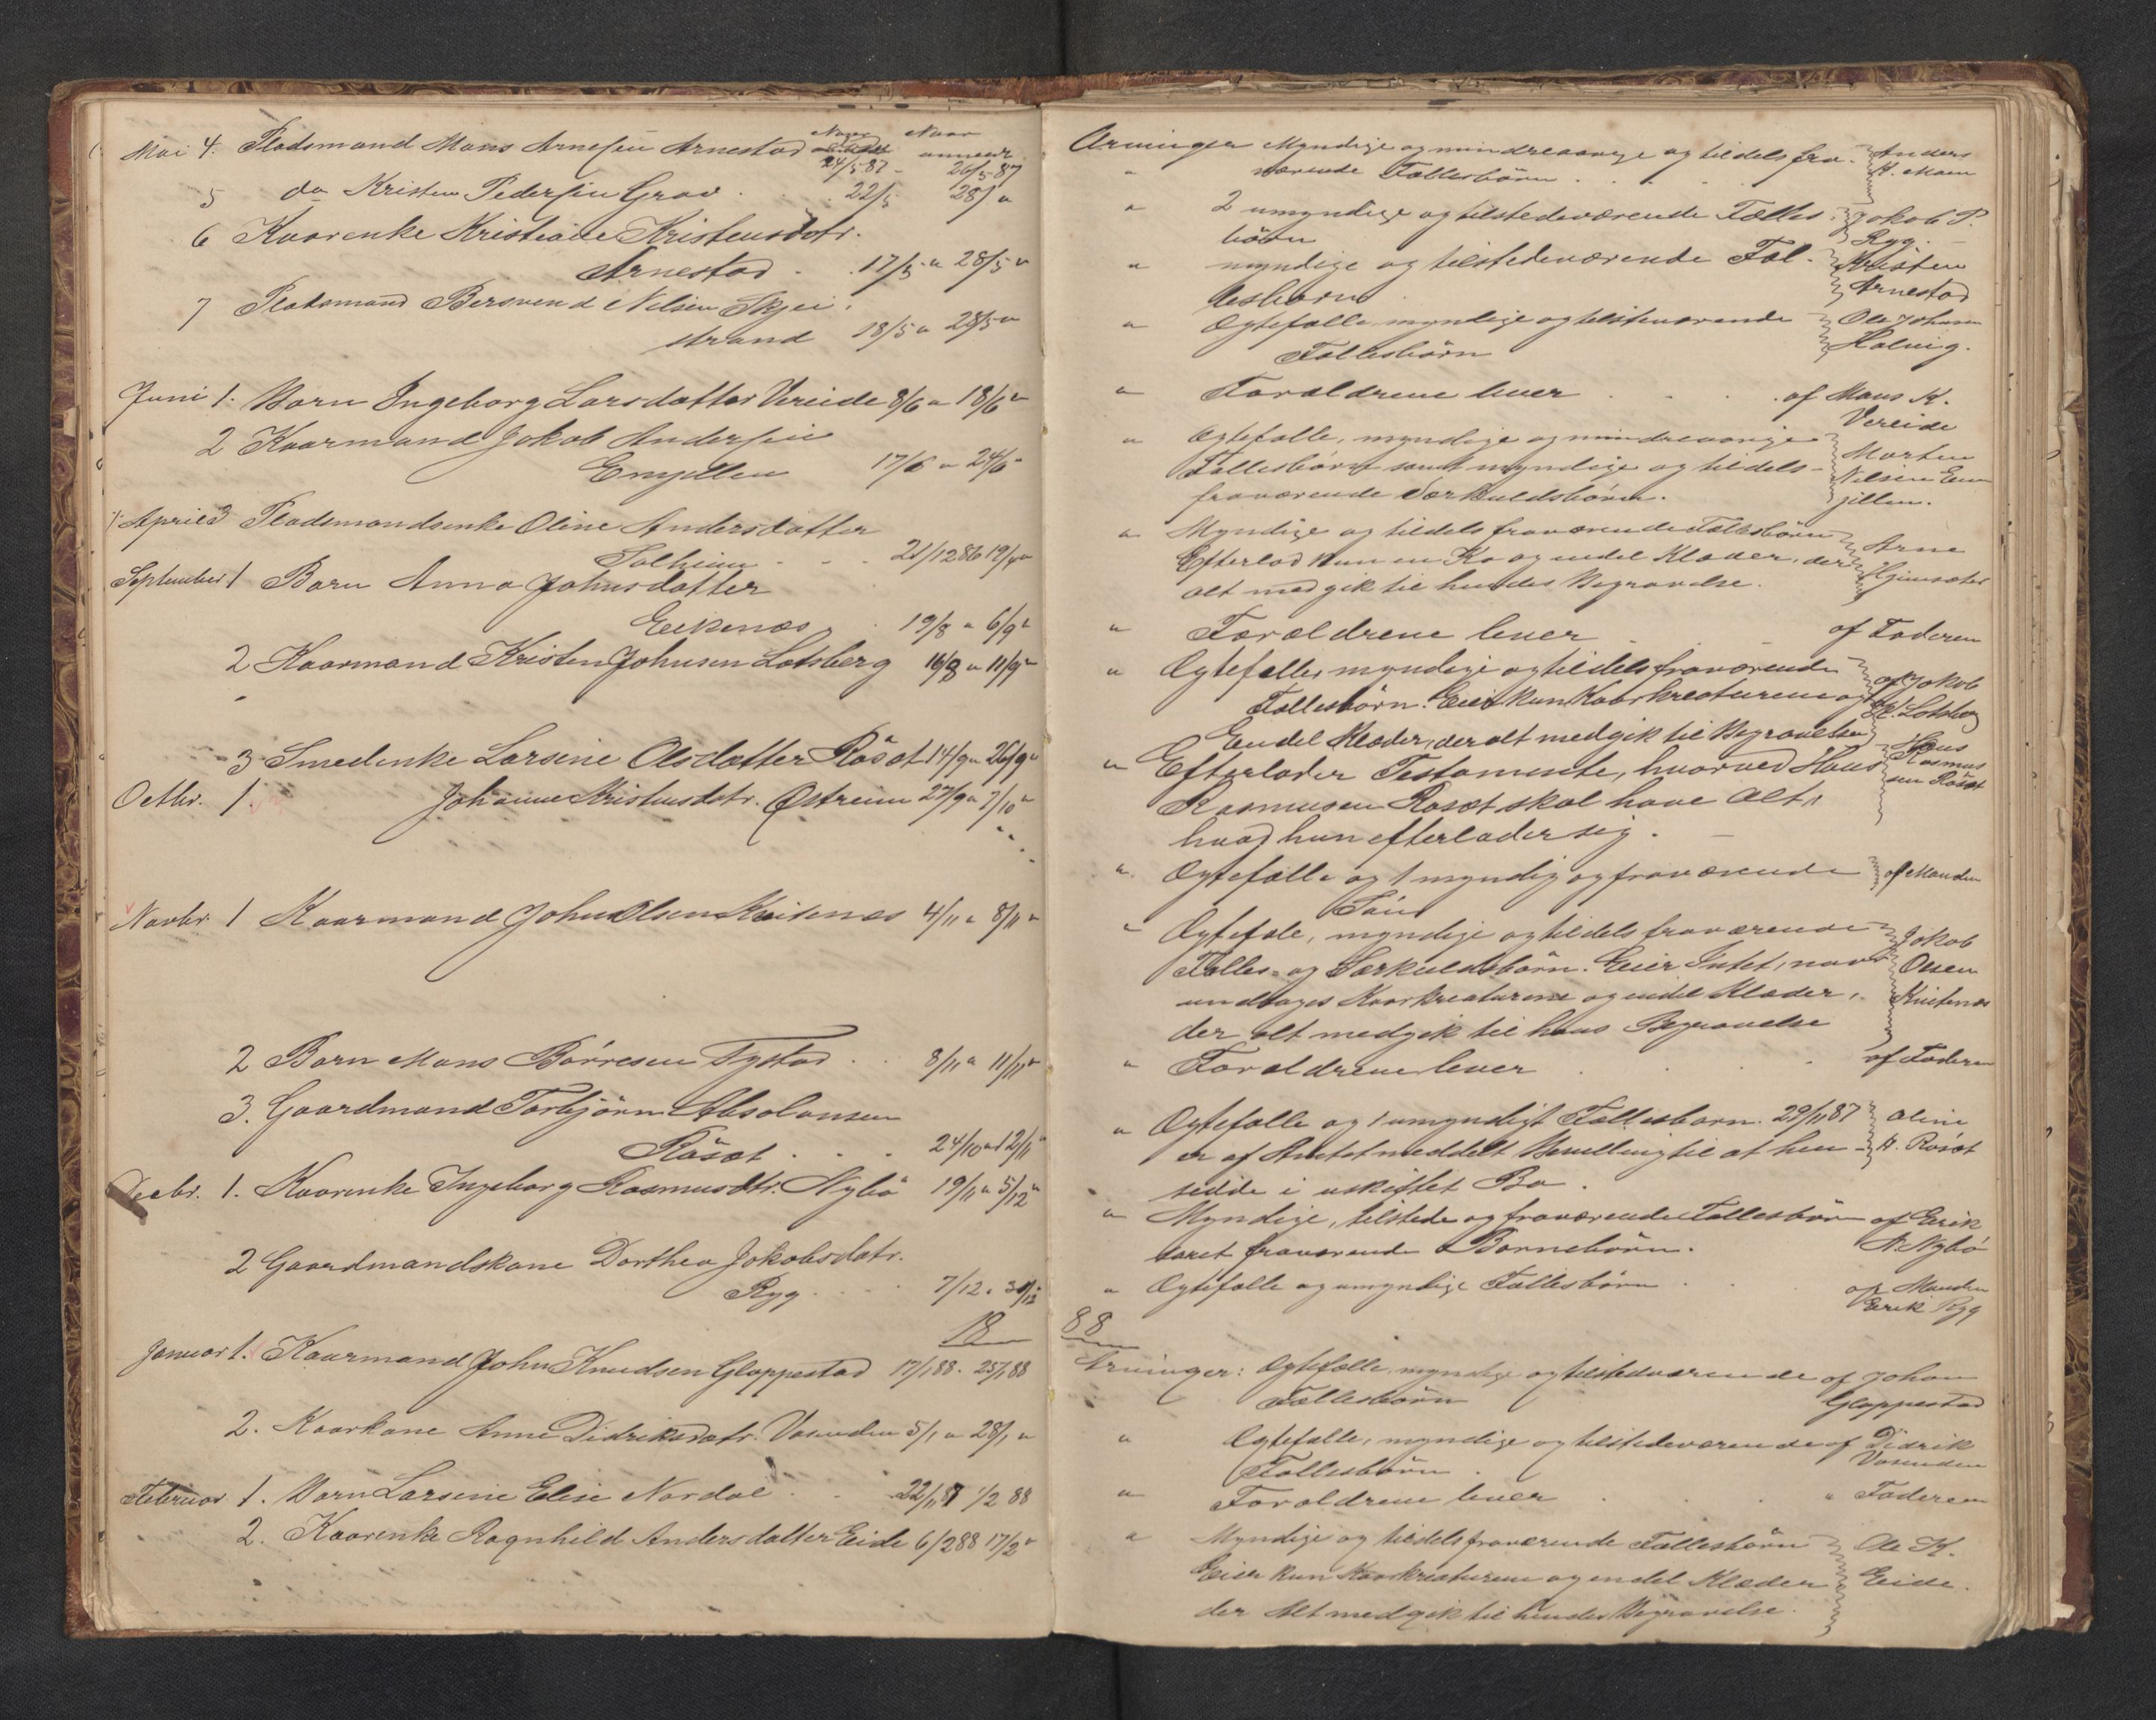 Mai 4. Pladsmand Mons Arnesen Arnestad Naar Naar
24/5 87 - 26/5 87
5 do Kristen Pedersen Grov . . 22/5 28/ "
6 Kaarenke Kristiane Kristensdotr.
Arnestad . . 17/5 " 28/5 "
7 Pladsmand Bersvend Nilsen Skjei-
strand 18/5 " 28/5 "
Juni 1. Barn Ingeborg Larsdatter Vereide 8/6 " 18/6 "
2 Kaarmand Jakob Andersen
17/6 " 24/6 "
April 3 Pladsmandsenke Oline Andersdatter
Solheim . . . 21/12 86 19/4 "
September 1 Barn Anna Johnsdatter
Eikenæs . . 19/8 " 6/9 "
2 Kaarmand Kristen Johnsen Lotsberg 16/8 " 11/9 "
3 Smedenke Larsine Olsdatter Røset 14/9 " 26/9 "
Octbr. 1. Johanne Kristensdotr. Østreim 27/9 " 7/10 "
Novbr. 1 Kaarmand John Olsen 4/11 " 8/11 "
2 Barn Mons Børresen Tystad . . 8/11 " 11/11 "
3. Gaardmand Torbjörn Absalonsen
Röset . . . 24/10 " 12/11 "
Decbr. 1. Kaarenke Ingeborg Rasmusdtr. Nybö 19/11 " 5/12 "
2 Gaardmandskone Dorthea Jakobsdatr.
Ryg . . . 7/12 " 30/12
18
Januar 1. Kaarmand John Knudsen Gloppestad 17/1 88 - 25/1 88
2. Kaarkone Anne Didriksdatr. Vasenden 5/1 " 28/1 "
Februar 1. Barn Larsine Elise Nordal . . 22/11 87 1/2 88
2. Kaarenke Ragnhild Andersdatter Eide 6/2 88 17/2 "
Arvinger Myndige og mindreaarige og tildels fra- Anders
værende Fællesbörn . . . .
" 2 umyndige og tilstedeværende Fælles- Jakob P.
börn Ryg.
" myndige og tilstedeværende Fæl- Kristen
lesbörn . Arnestad
" Ægtefælle, myndige og tilstedeværende Ole Johnsen
Fællesbörn
" Forældrene lever . . . af Mons K.
Vereide
" Ægtefælle, myndige og mindreaarige Morten
Fællesbörn samt myndige og tildels- Nilsen
fraværende Særkuldsbörn.
" Myndige og tildels fraværende Fællesbörn Arne
Efterlod kun en Ko og endel Klæder, der
alt medgik til hendes Begravelse.
" Forældrene lever . . af Faderen
" Ægtefælle, myndige og tildels fraværende af Jakob
Fællesbörn. Eier kun Kaarkreaturene og K. Lotsberg
Endel Klæder, der alt medgik til Begravelsen
" Efterlader Testamente, hvorved Hans Hans Rasmus
Rasmusen Röset skal have Alt, sen Röset
hvad hun efterlader sig.
" Ægtefælle og 1 myndig og fraværende af Manden
Sön
" Ægtefæle, myndige og tildels fraværende Jakob
Fælles- og Særkuldsbörn. Eier Intet, naar Olsen
undtages Kaarkreaturene og endel Klæder,
der alt medgik til hans Begravelse
" Forældrene lever . . af Faderen
" Ægtefælle og 1 umyndigt Fællesbarn. 29/11 87 Oline
er af Amtet meddelt Bevilling til at hen- A. Röset
sidde i uskiftet Bo.
" Myndige, tilstede og fraværende Fællesbörn af Erik
samt fraværende Barnebörn. A. Nybö
" Ægtefælle og umyndige Fællesbörn . . af Manden
Erik Ryg
88
Arvinger: Ægtefælle, myndige og tilstedeværende af Johan
Fællesbörn Gloppestad
" Ægtefælle, myndige og tilstedeværende af Didrik
Fællesbörn . Vasenden
" Forældrene lever . . " Faderen
" Myndige og tildels fraværende Fællesbörn Ole K.
Eier kun Kaarkreaturene og endel Klæder Eide.
der Alt medgik til hendes Begravelse.